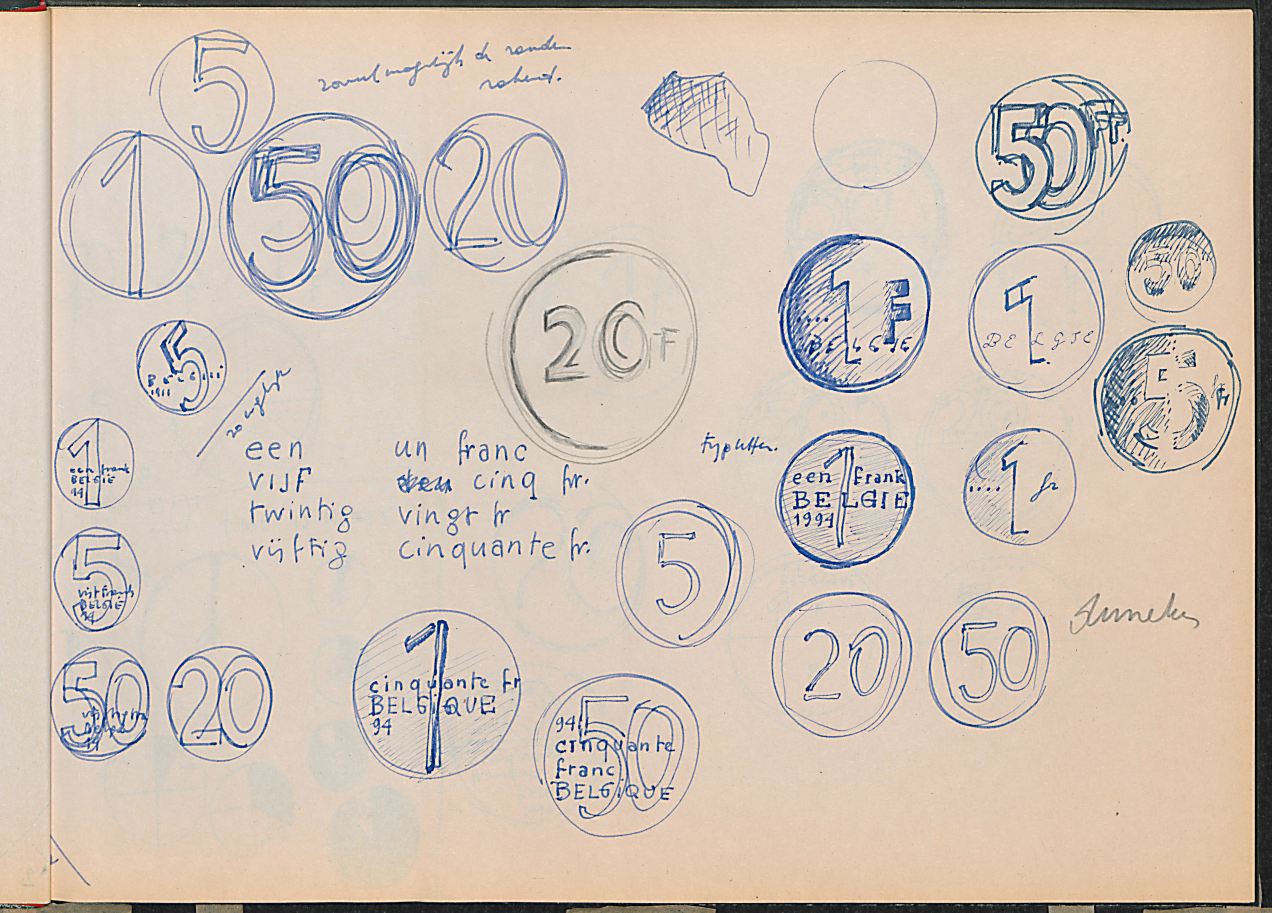 5
zoveel mogelijk de randen
rakend.
1
50
20
50 Fr
20 F
1 F
BELGIE
1
BELGIE
50
5
Fr
5
een frank
1
BELGIE
94
een
VIJF
twintig
vijftig
un franc
cinq fr.
vingt fr
cinquante fr.
5
vijf frank
BELGIE
94
5
1
een frank
BELGIE
1994
1 fr
50
20
1
cinquante fr
BELGIQUE
94
50
94
cinquante
franc
BELGIQUE
20
50